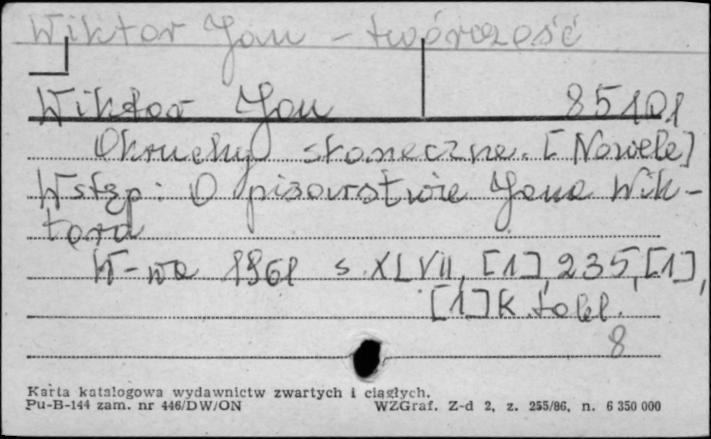 Wiktor Jan - twórczość
Wiktor Jan 85101
Okruchy słoneczne. [Nowele]
Wstęp: O pisarstwie Jana Wik-
tora
W-wa 1961 s. XLVII, [1], 235, [1],
[1] k. tabl.
8
Karta katalogowa wydawnictw zwartych i ciągłych.
Pu-B-144 zam. nr 446/DW/ON WZGraf. Z-d 2, z. 255/86, n. 6 350 000